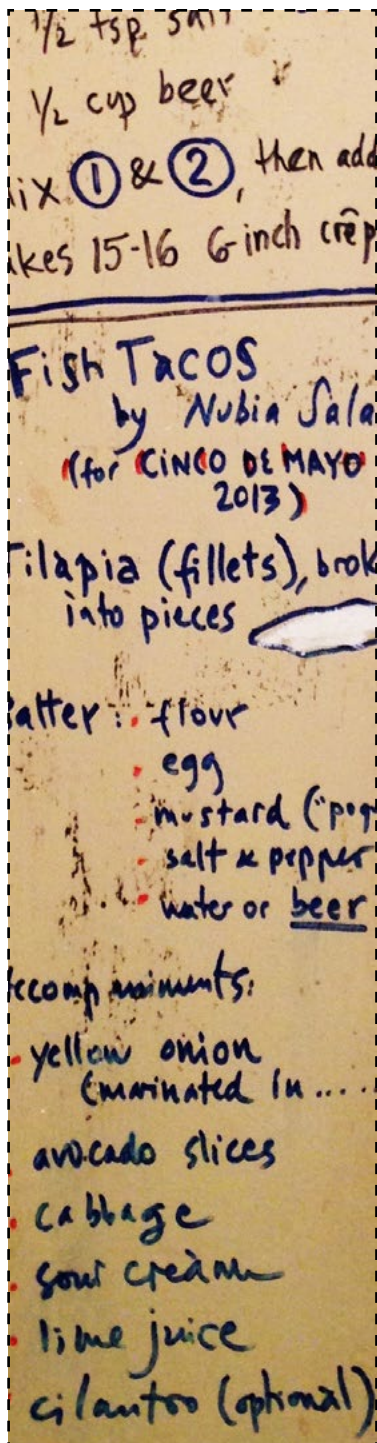 1/2 tsp salt
1/2 cup beer
ix ① & ②, then add
akes 15-16 6-inch crêp
Fish Tacos
by Nubia Sala
(for CINCO DE MAYO
2013)
Tilapia (fillets), brok
into pieces
Batter: • flour
• egg
• mustard ("pog
• salt & pepper
• water or beer
Accompaniments:
• yellow onion
(marinated in ....
avocado slices
• cabbage
• sour cream
• lime juice
• cilantro (optional)